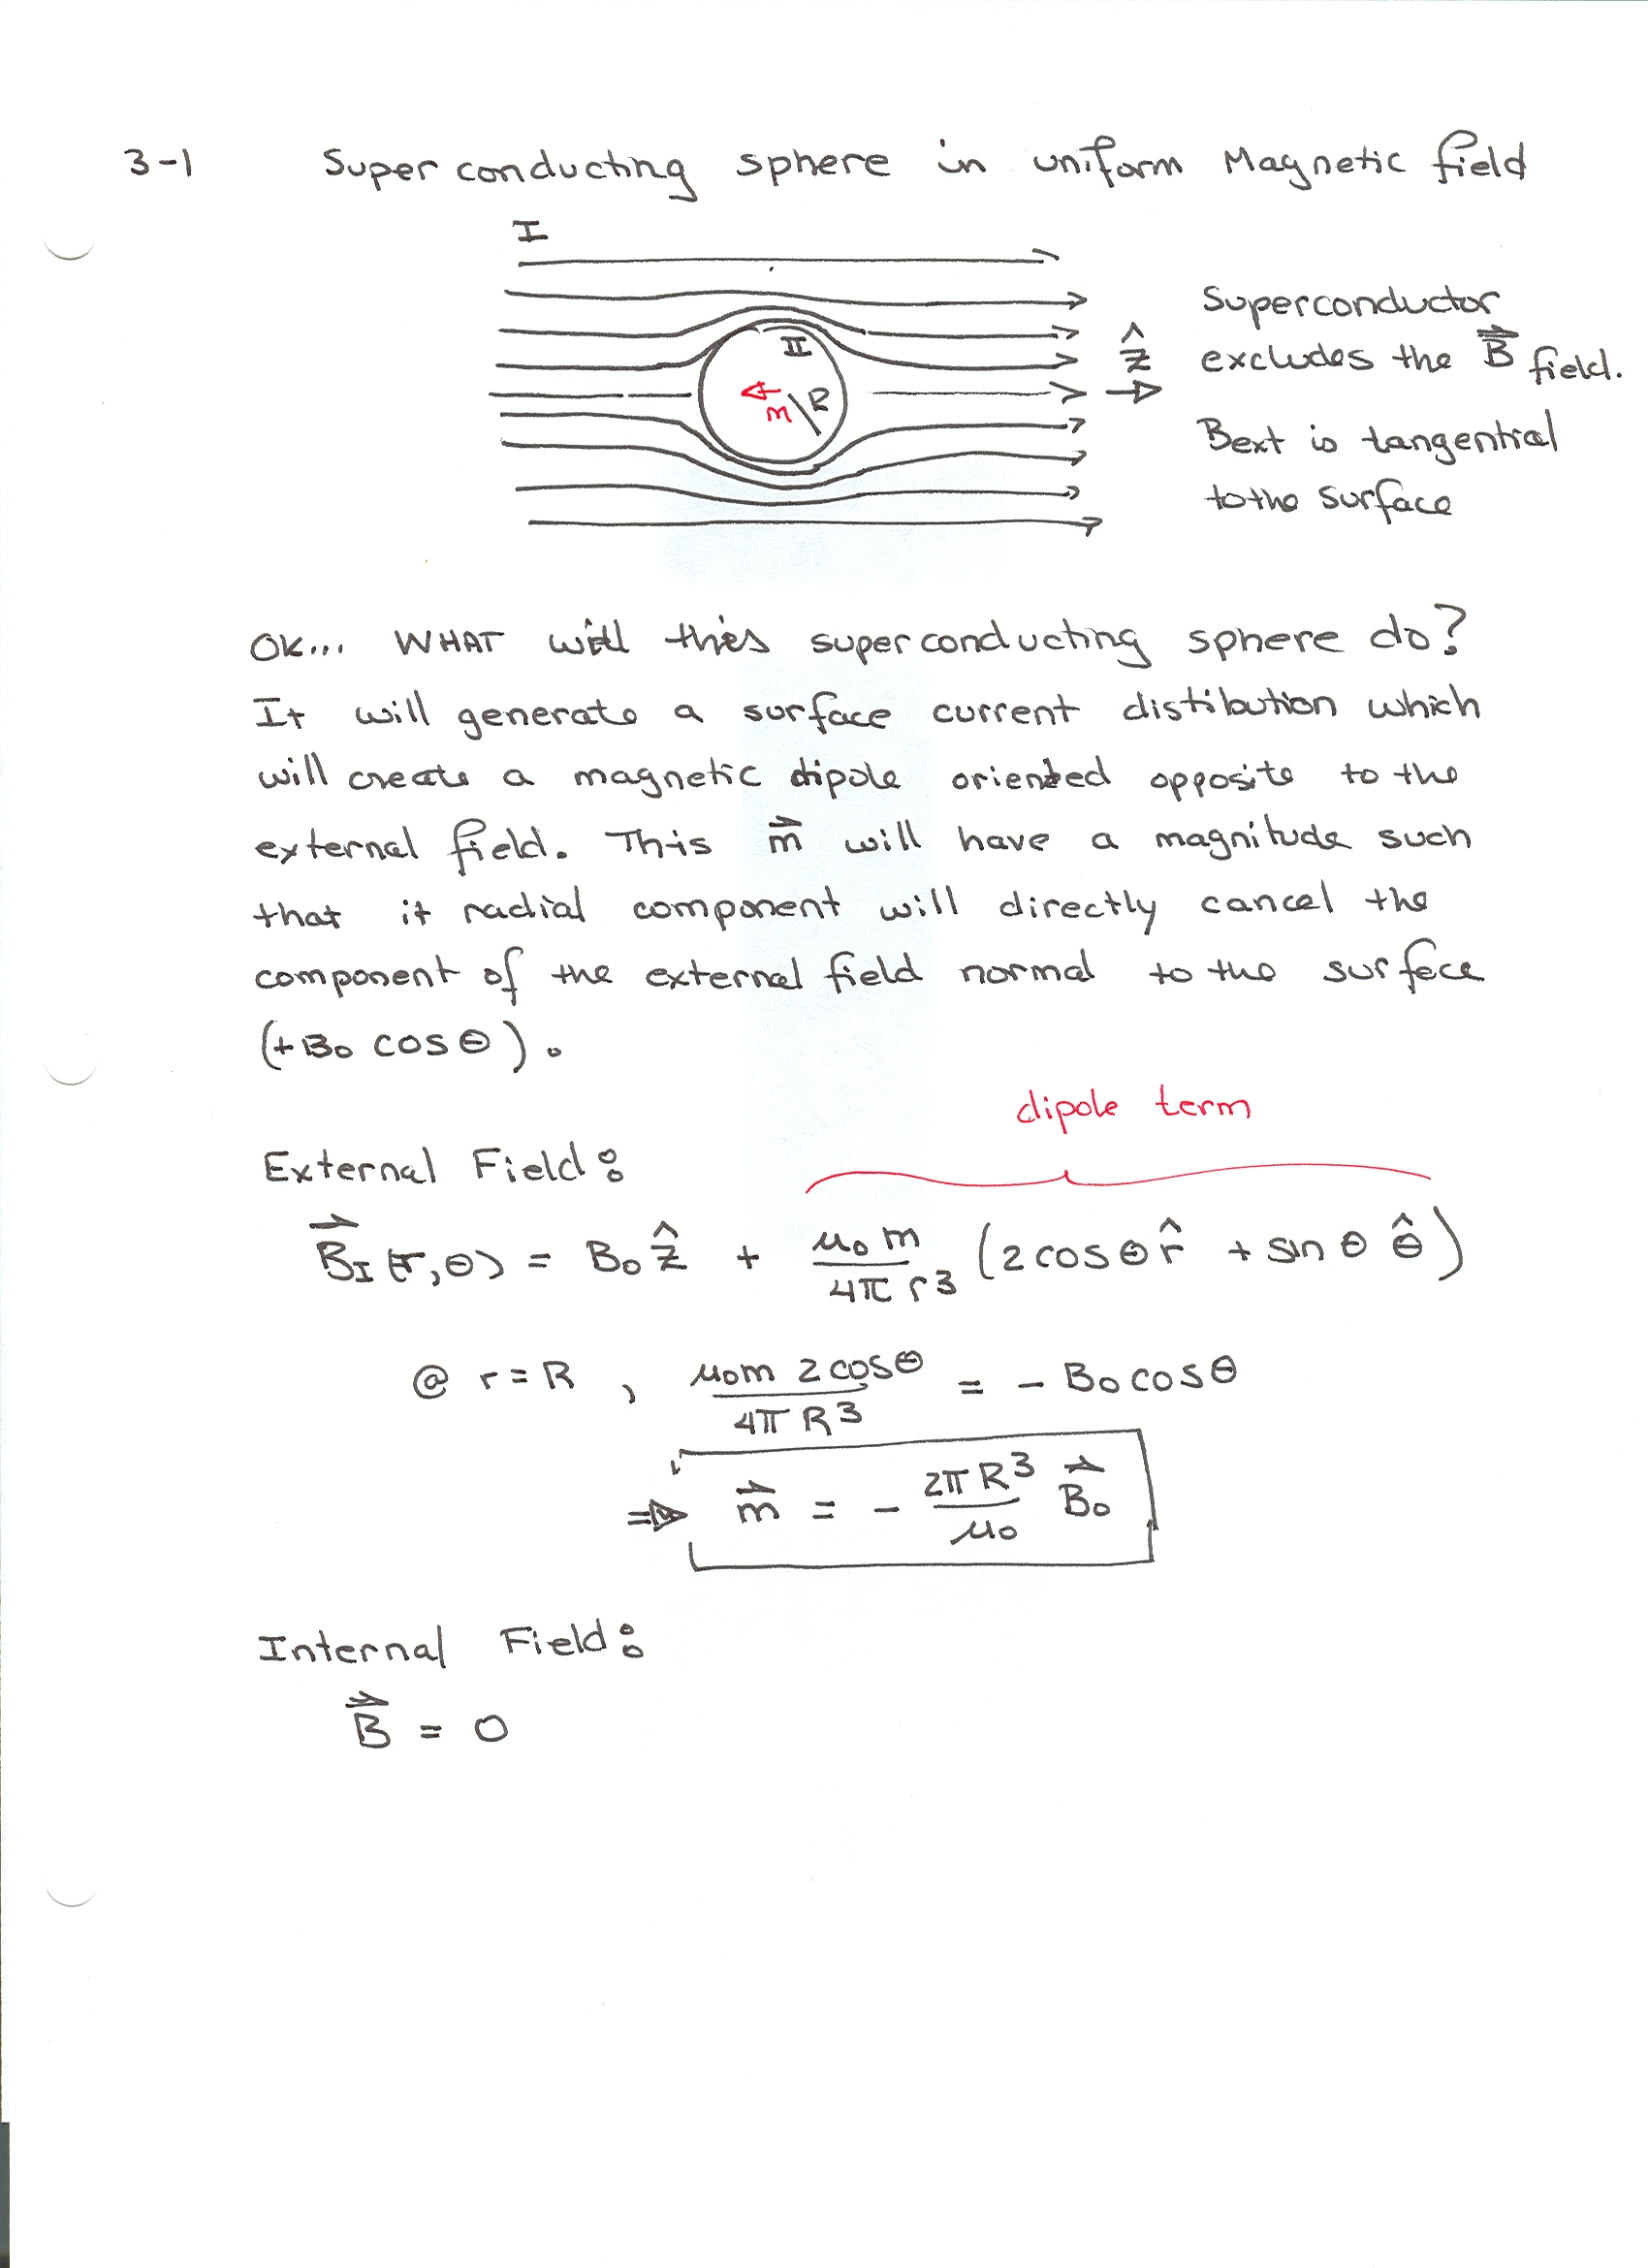 3-1 Superconducting sphere in uniform Magnetic field
I
II
m R
ẑ
Superconductor
excludes the B⃗ field.
Bext is tangential
to the surface
OK... WHAT will this superconducting sphere do?
It will generate a surface current distibution which
will create a magnetic dipole oriented opposite to the
external field. This m⃗ will have a magnitude such
that it radial component will directly cancel the
component of the external field normal to the surface
(+B₀ cos θ).
dipole term
External Field:
B⃗_I (r,θ) = B₀ ẑ + μ₀ m / 4π r³ (2 cos θ r̂ + sin θ θ̂)
@ r = R , μ₀m 2 cos θ / 4π R³ = - B₀ cos θ
⇒ m⃗ = - 2π R³ / μ₀ B⃗₀
Internal Field:
B⃗ = 0